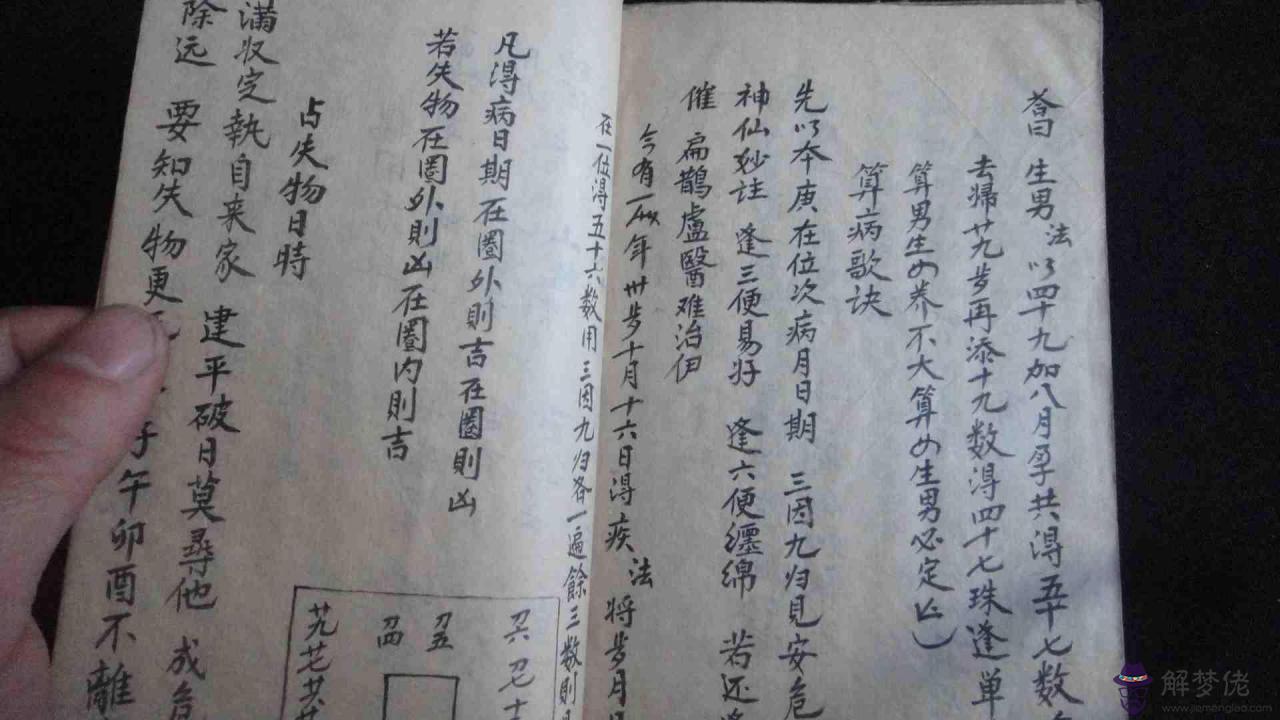 答曰 生男 法以四十九加八月孕共得五十七数
去歸廿九步再添十九数得四十七珠逢单
算男生女养不大算女生男必定亡
算病歌诀
先以本庚在位次病月日期 三因九归見安危
神仙妙註 逢三便易好 逢六便纏绵 若还逢
催 扁鵲盧醫难治伊
今有一人年卅步十月十六日得疾 法 將步月日
在一位得五十六数用三因九归各一遍餘三数則
凡得病日期在圈外則吉在圈則凶
若失物在圈外則凶在圈内則吉
占失物日時
满収定執自来家 建平破日莫尋他 成危
除远 要知失物更 子午卯酉不離
解梦佬
www.jiemenglao.com